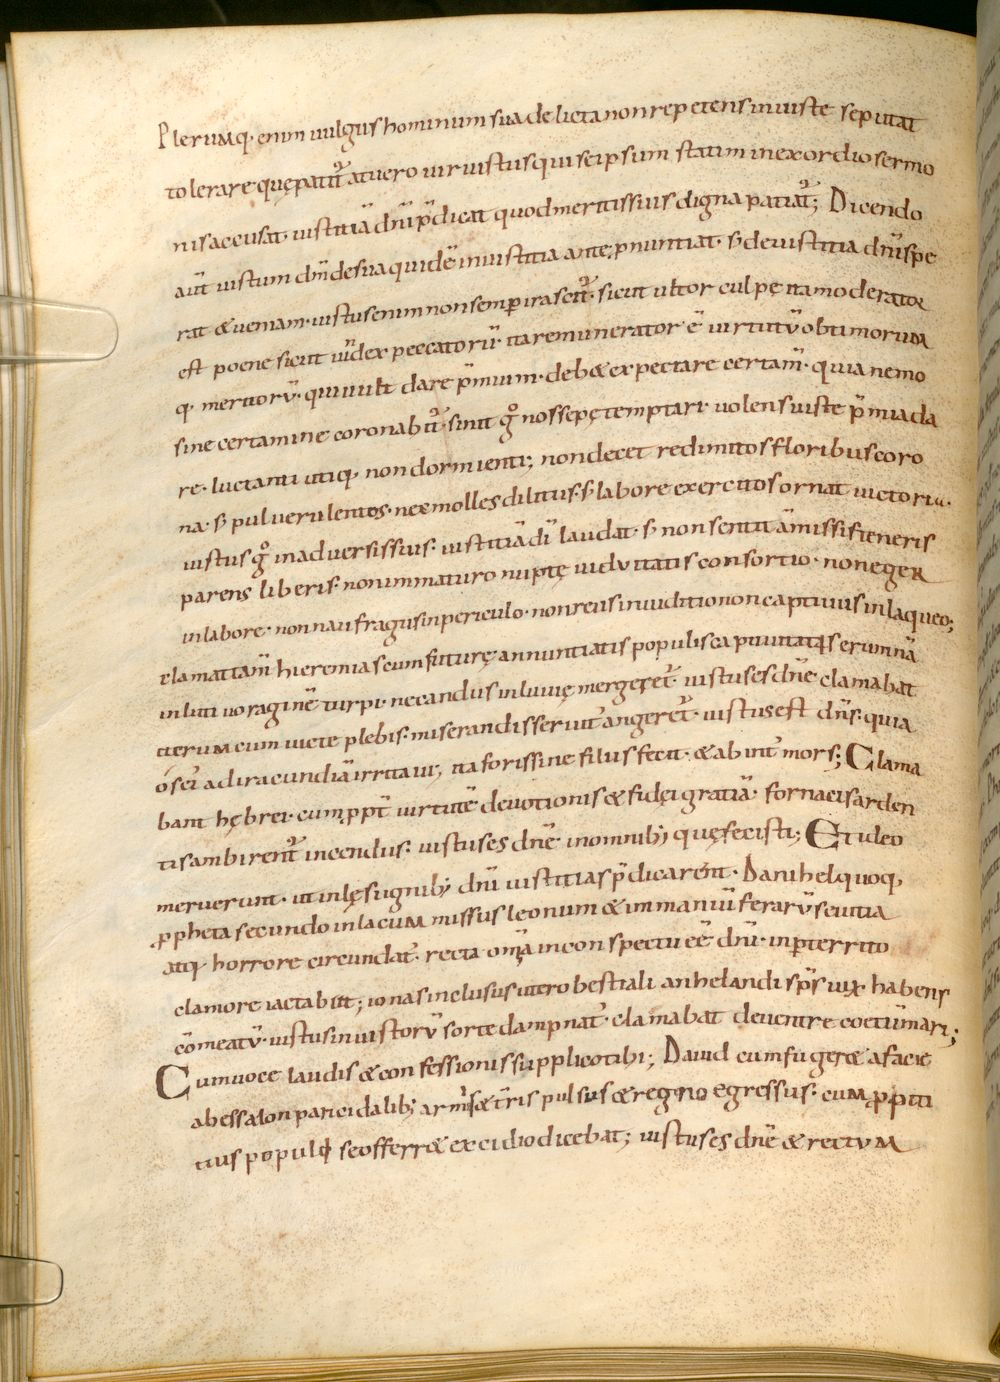 Plerumq· enim uulgus hominum sua delicta non repetens iniuste se putat
tolerare quę patit᷑ at uero uir iustus qui se ipsum statim in exordio sermo
nis accusat· iustitiā dn̄i p̄dicat quod meritis suis digna patiat᷑; Dicendo
aūt iustum dn̄m de sua quidē iniustitia ante ꝓnuntiat· s; de iustitia dn̄i spe
rat & ueniam· iustus enim non semper irascit᷑· sicut ultor culpę ita moderator
est poene sicut iudex peccatorū· ita remunerator ē uirtutū obtimorum
q· meritorū· qui uult dare p̄mium· deb& expectare certam̄· quia nemo
sine certamine coronabit᷑· sinit g̊ nos sepę temptari uolens iuste p̄mia da
re· luctanti utiq· non dormienti; non decet redimitos floribus coro
na· s; puluerulentos· nec molles dilitiis· s; labore exercitos ornat uictoria·
iustus g̊ in aduersis suis· iustitiā dī laudat· s; non sentit āmissis ieneris
parens liberis· non immaturo nuptę uiduitatis consortio· non eger
in labore· non naufragus in periculo· non reus in iuditio non captiuus in laqueo;
clamat tam̄ hieremias cum futurę annuntiatis populis captiuitatis erumnā
in luti uoraginē turpi· necandus inluuię merger&᷑· iustus es dn̄e clamabat
iterum cum uicte plebis· miserandis seruit᷑ anger&᷑· iustus est dn̄s· quia
os ei᷑ ad iracundiā irritaui; ita foris sine filiis fecit· & ab int᷑ mors; Clama
bant hębrei· cum ꝓpt᷑ uirtutē deuotionis & fidęi gratiā· fornacis arden
tis ambirent᷑ incendiis· iustus es dn̄e in omnib; quę fecisti; Et ideo
meruerunt· ut in lęsu ignib; dn̄i iustitias p̄dicarent· Danihel quoq,
ꝓpheta secundo in lacum missus leonum & immaniū ferarū seuitia
atq· horrore circundat᷑· recta om̄ia in conspectu eē dn̄i· inperterrito
clamore iactabat; ionas inclusus utero bestiali anhelandi sp̄s uix habens
cōmeatū· iustus iniustorū sorte dampnat᷑· clamabat de uentre coetūmari;
Cum uoce laudis & confessionis supplico tibi; Dauid cum fuger& a facie
abessalon paricidalib; armis & t̄ris pulsus & regno egressus· cum ꝓpiti
tius populo se offerr& excidio dicebat; iustus es dn̄e & rectum